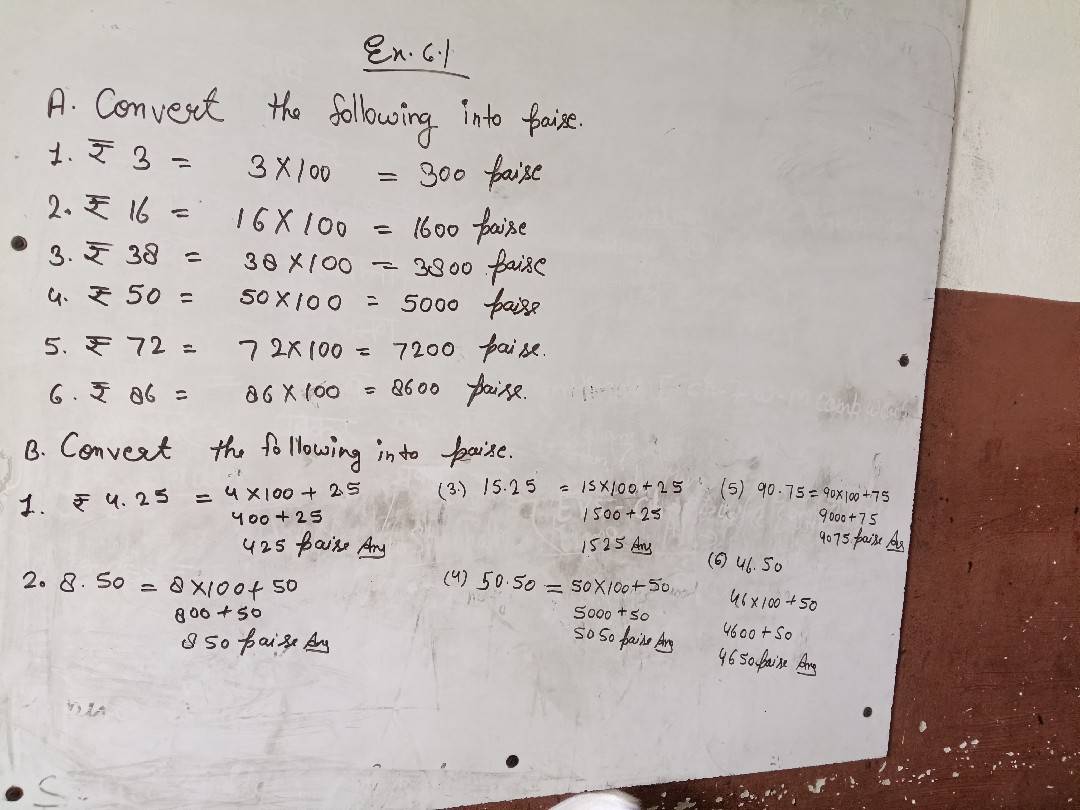 Ex. 6.1
A. Convert the following into paise.
1. ₹ 3 = 3 X 100 = 300 paise
2. ₹ 16 = 16 X 100 = 1600 paise
3. ₹ 38 = 38 X 100 = 3800 paise
4. ₹ 50 = 50 X 100 = 5000 paise
5. ₹ 72 = 72 X 100 = 7200 paise.
6. ₹ 86 = 86 X 100 = 8600 paise.
B. Convert the following into paise.
1. ₹ 4.25 = 4 X 100 + 25
400 + 25
425 paise Ans
2. 8.50 = 8 X 100 + 50
800 + 50
850 paise Ans
(3.) 15.25 = 15 X 100 + 25
1500 + 25
1525 Ans
(4) 50.50 = 50 X 100 + 50
5000 + 50
5050 paise Ans
(5) 90.75 = 90 X 100 + 75
9000 + 75
9075 paise Ans
(6) 46.50
46 X 100 + 50
4600 + 50
4650 paise Ans